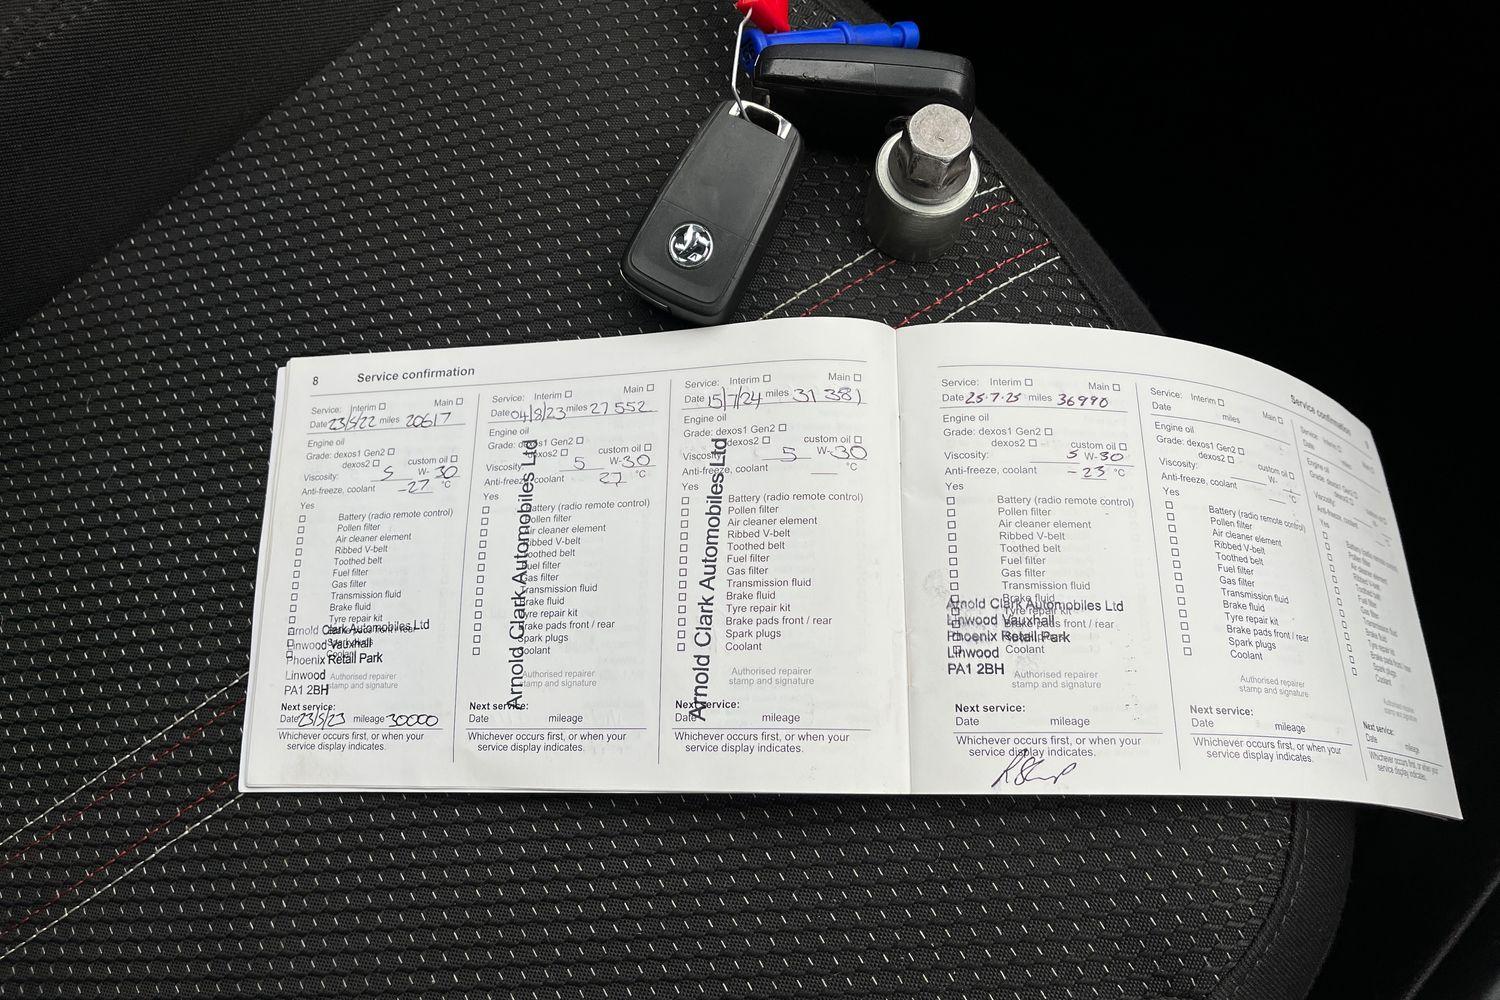 8 Service confirmation
Service: Interim Main
Date 23/5/22 miles 20617
Engine oil
Grade: dexos1 Gen2
dexos2 custom oil
Viscosity: 5 W- 30
Anti-freeze, coolant -27 °C
Yes
Battery (radio remote control)
Pollen filter
Air cleaner element
Ribbed V-belt
Toothed belt
Fuel filter
Gas filter
Transmission fluid
Brake fluid
Tyre repair kit
Brake pads front / rear
Spark plugs
Coolant
Arnold Clark Automobiles Ltd
Linwood Vauxhall
Phoenix Retail Park
Linwood
PA1 2BH
Authorised repairer
stamp and signature
Next service:
Date 23/5/23 mileage 30000
Whichever occurs first, or when your
service display indicates.
Service: Interim Main
Date 04/8/23 miles 27552
Engine oil
Grade: dexos1 Gen2
dexos2 custom oil
Viscosity: 5 W-30
Anti-freeze, coolant 27 °C
Yes
Battery (radio remote control)
Pollen filter
Air cleaner element
Ribbed V-belt
Toothed belt
Fuel filter
Gas filter
Transmission fluid
Brake fluid
Tyre repair kit
Brake pads front / rear
Spark plugs
Coolant
Arnold Clark Automobiles Ltd
Authorised repairer
stamp and signature
Next service:
Date mileage
Whichever occurs first, or when your
service display indicates.
Service: Interim Main
Date 15/7/24 miles 31381
Engine oil
Grade: dexos1 Gen2
dexos2 custom oil
Viscosity: 5 W-30
Anti-freeze, coolant °C
Yes
Battery (radio remote control)
Pollen filter
Air cleaner element
Ribbed V-belt
Toothed belt
Fuel filter
Gas filter
Transmission fluid
Brake fluid
Tyre repair kit
Brake pads front / rear
Spark plugs
Coolant
Arnold Clark Automobiles Ltd
Authorised repairer
stamp and signature
Next service:
Date mileage
Whichever occurs first, or when your
service display indicates.
Service: Interim Main
Date 25·7·25 miles 36990
Engine oil
Grade: dexos1 Gen2
dexos2 custom oil
Viscosity: 5 W-30
Anti-freeze, coolant -25 °C
Yes
Battery (radio remote control)
Pollen filter
Air cleaner element
Ribbed V-belt
Toothed belt
Fuel filter
Gas filter
Transmission fluid
Brake fluid
Tyre repair kit
Brake pads front / rear
Spark plugs
Coolant
Arnold Clark Automobiles Ltd
Linwood Vauxhall
Phoenix Retail Park
Linwood
PA1 2BH
Authorised repairer
stamp and signature
Next service:
Date mileage
Whichever occurs first, or when your
service display indicates.
Service confirmation
Service: Interim Main
Date miles
Engine oil
Grade: dexos1 Gen2
dexos2 custom oil
Viscosity: W-
Anti-freeze, coolant °C
Yes
Battery (radio remote control)
Pollen filter
Air cleaner element
Ribbed V-belt
Toothed belt
Fuel filter
Gas filter
Transmission fluid
Brake fluid
Tyre repair kit
Brake pads front / rear
Spark plugs
Coolant
Authorised repairer
stamp and signature
Next service:
Date mileage
Whichever occurs first, or when your
service display indicates.
Engine oil
Yes
Battery (radio remote control)
Pollen filter
Air cleaner element
Ribbed V-belt
Toothed belt
Fuel filter
Gas filter
Transmission fluid
Brake fluid
Tyre repair kit
Brake pads front / rear
Spark plugs
Coolant
Next service:
Date mileage
Whichever occurs first, or when your
service display indicates.